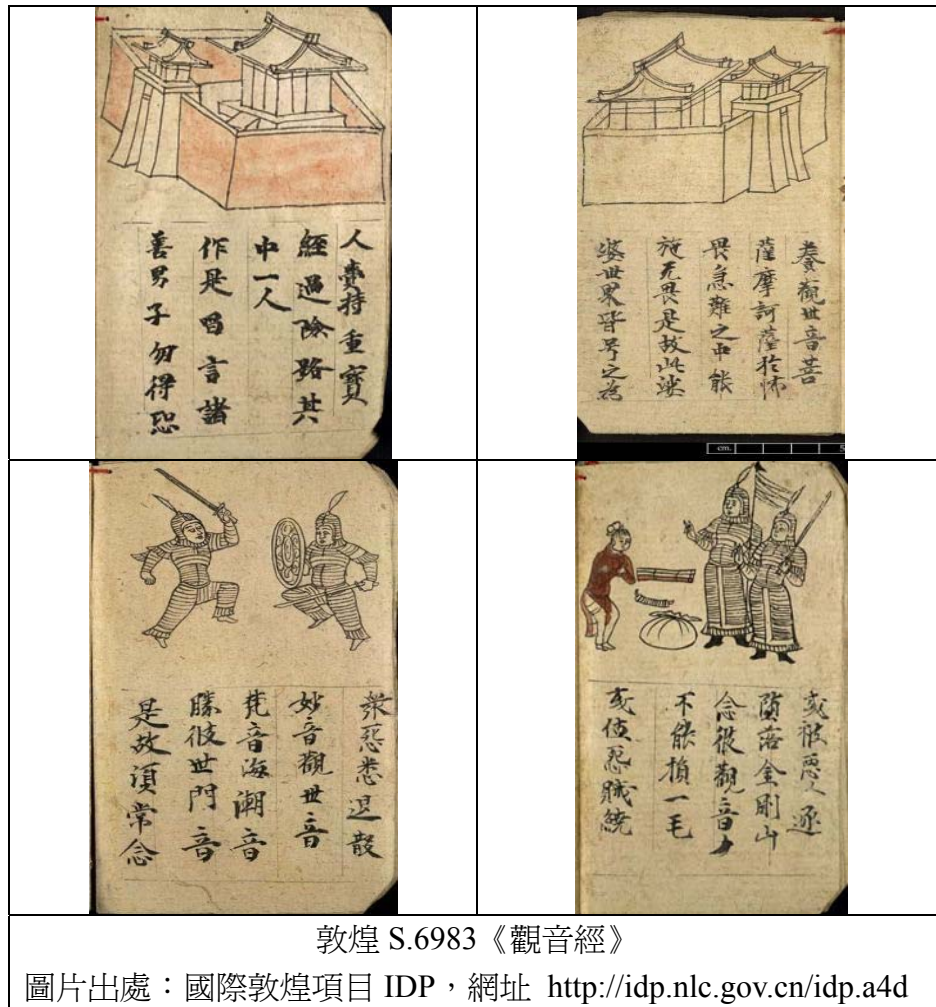 人賷持重寶
經過險路其
中一人
作是唱言諸
善男子勿得恐
養觀世音菩
薩摩訶薩於怖
畏急難之中能
施无畏是故此娑
婆世界皆号之為
衆怨悉退散
妙音觀世音
梵音海潮音
勝彼世門音
是故須常念
cm. 5
或被惡人逐
墮落金剛山
念彼觀音力
不能損一毛
或值怨賊繞
敦煌 S.6983《觀音經》
圖片出處：國際敦煌項目 IDP，網址 http://idp.nlc.gov.cn/idp.a4d